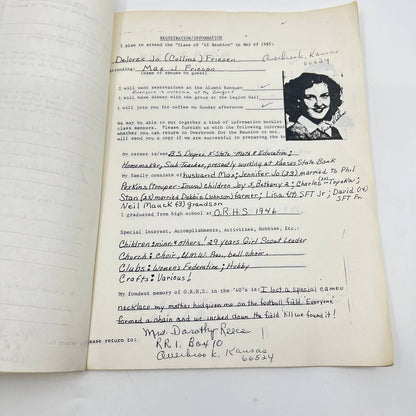 REGISTRATION/INFORMATION
I plan to attend the "Class of '45 Reunion" in May of 1985:
Delores Jo (Collins) Friesen
Overbrook, Kansas
66524
attending: Max J. Friesen
(name of spouse or guest)
I will want reservations at the Alumni Banquet
I will have dinner with the group at the Legion Hall
I will join you for coffee on Sunday afternoon
We would like to put together a kind of information booklet
class members. Please furnish us with the following information
whether you can return to Overbrook for the Reunion or not
will send you a copy if we are successful in preparing
My career is/was B.S. Degree K-State-Math & Education;
Homemaker, Sub-Teacher, presently working at Kansas State Bank
My family consists of husband Max; Jennifer Jo (33) married to Phil
Perkins (Trouper-Iowa) children Joy 5, Bethany 2; Charles - Topeka;
Stan married Debbie (Johnson) farmer; Lisa SFT Jr; David (14)
SFT Fr.
Neil Mauck (3) grandson
I graduated from high school at O.R.H.S. 1946
Special Interest, Accomplishments, Activities, Hobbies, Etc.:
Children: mine & others! 29 years Girl Scout Leader
Church: choir, U.M.W. bell choir
Clubs: Women's Federation; Hobby
Crafts: Various!
My fondest memory of O.R.H.S. in the '40's is: I lost a special cameo
necklace my mother had given me on the football field. Everyone
formed a chain and we inched down the field 'till we found it!
Please return to:
Mrs. Dorothy Reece
R.R. 1, Box 10
Overbrook, Kansas
66524